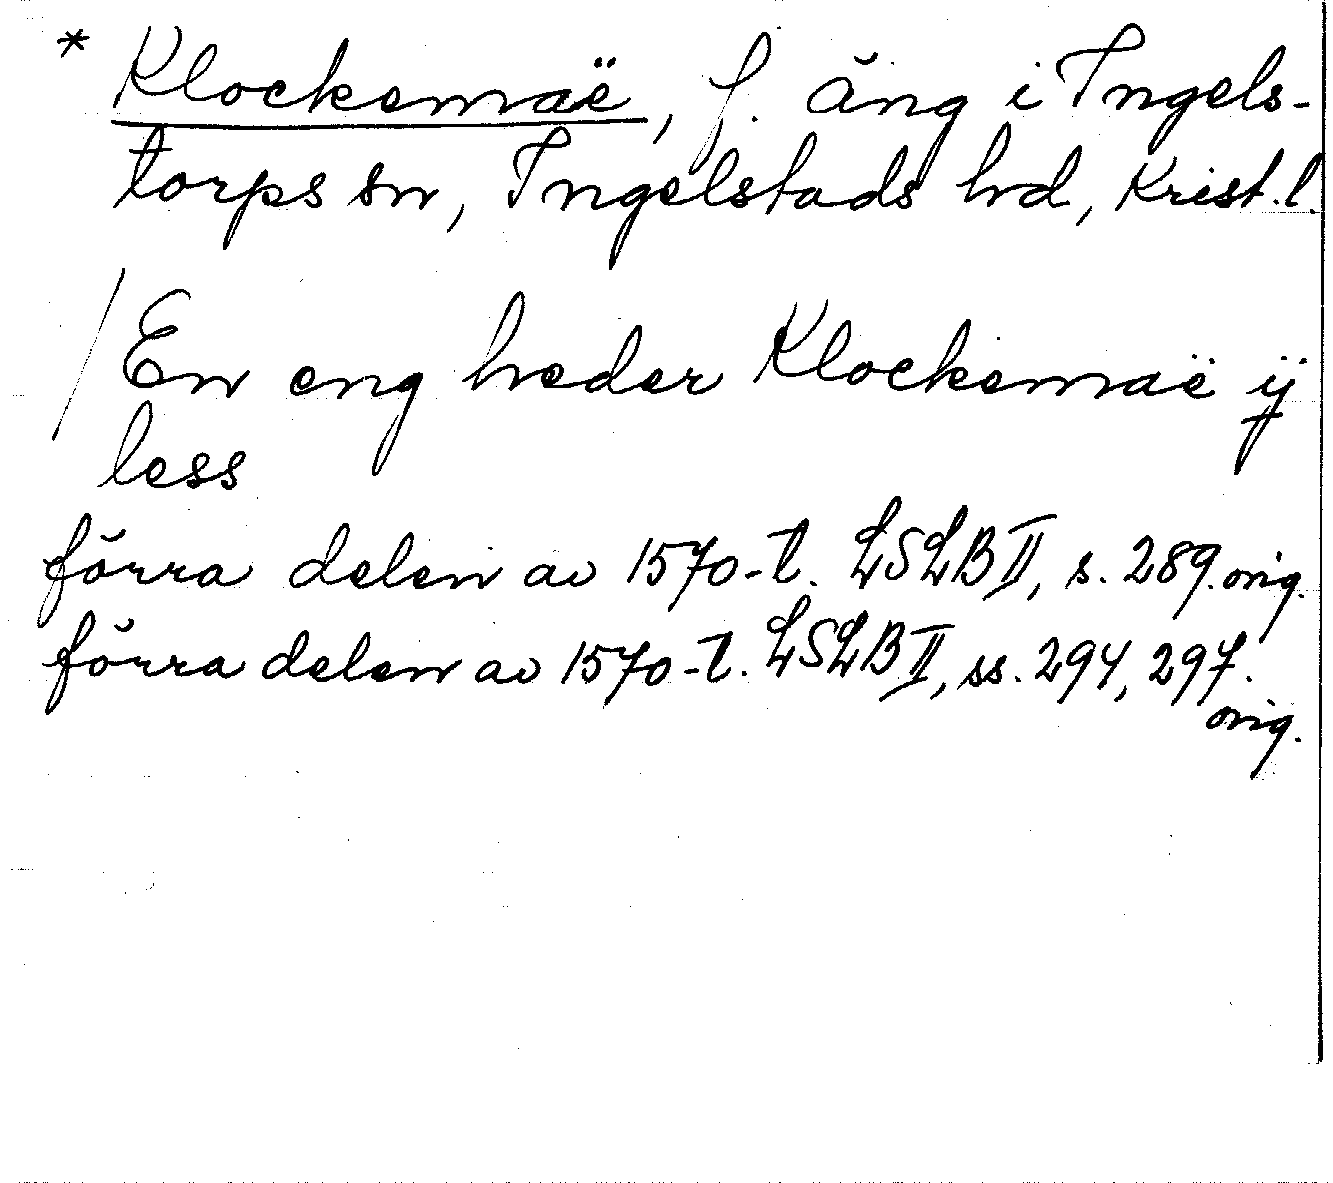 * Klockemaë, f. äng i Ingels-
torps sn, Ingelstads hd, Krist. l.
/ En eng heder Klockemaë ij
less
förra delen av 1570-t. LSLB II, s. 289. orig.
förra delen av 1570-t. LSLB II, ss. 294, 297.
orig.